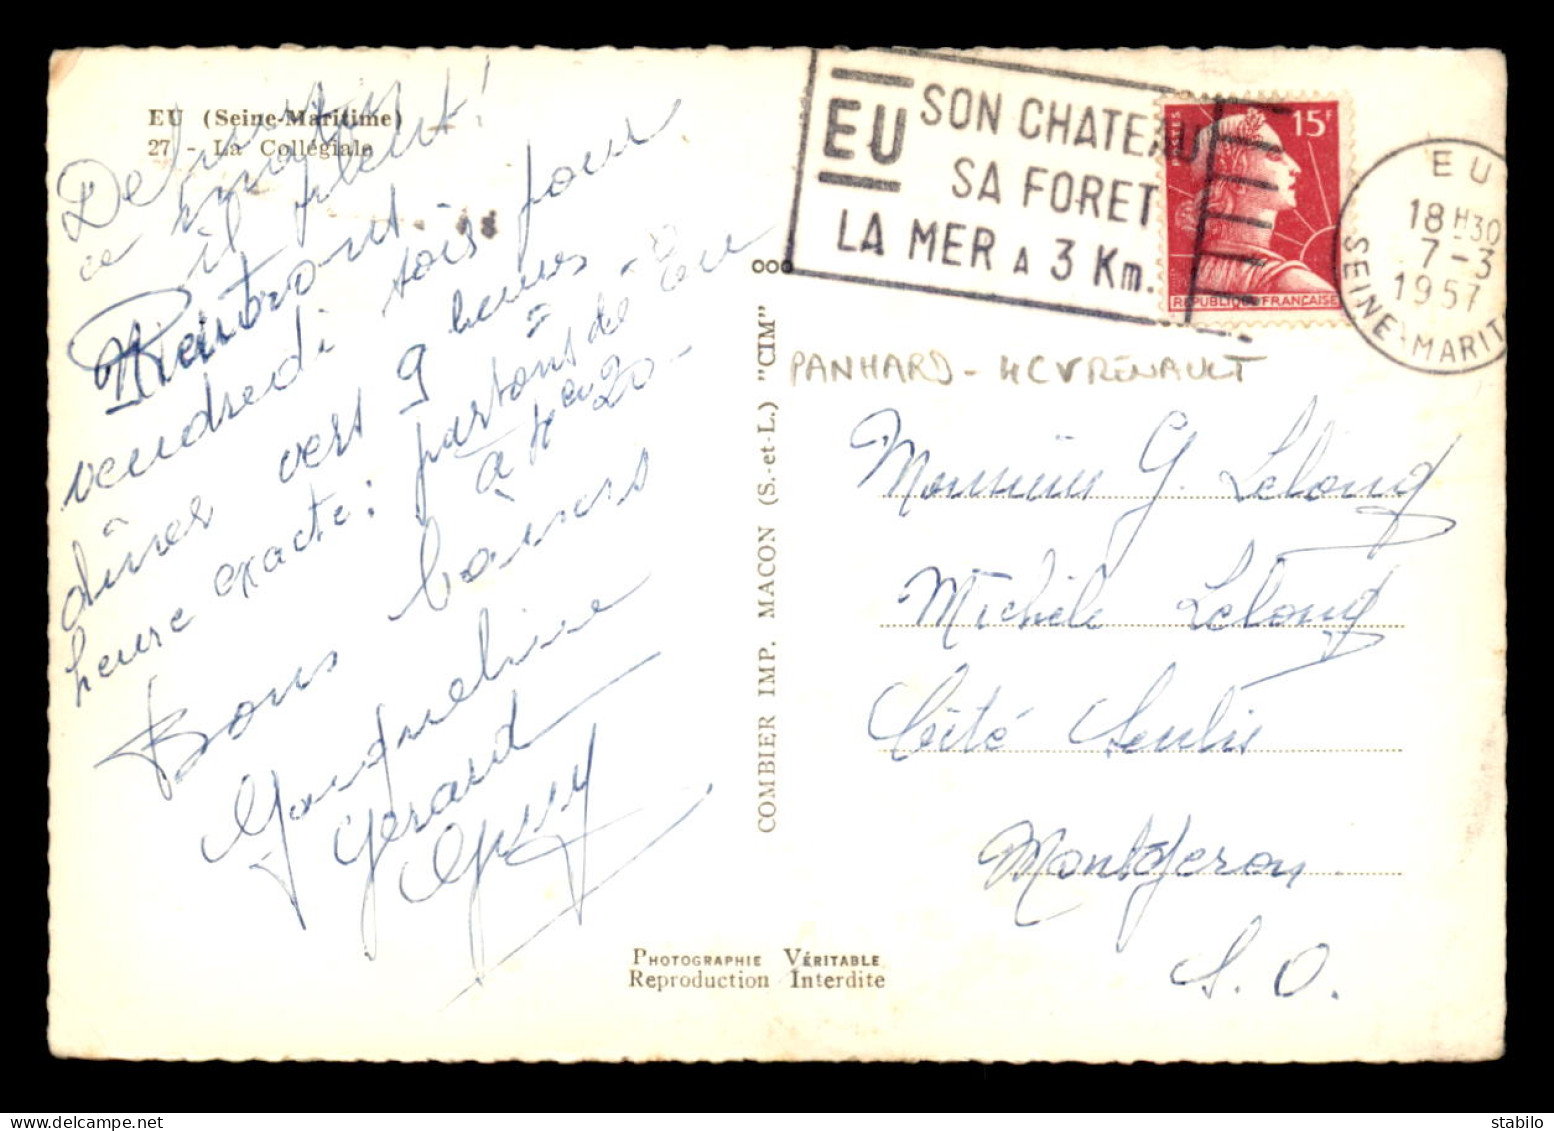 EU (Seine-Maritime)
27 - La Collégiale
Depuis
ce matin
il pleut!
Rentrons
vendredi soir pour
dîner vers 9 heures
heure exacte: partons de Eu
à 20
Bons baisers
Jacqueline
Gérard
Guy
COMBIER IMP. MACON (S.-et-L.) "CIM"
PHOTOGRAPHIE VÉRITABLE
Reproduction Interdite
EU
SON CHATEAU
SA FORET
LA MER A 3 Km.
POSTES
15F
REPUBLIQUE FRANÇAISE
EU
18H30
7-3
1957
SEINE-MARIT
PANHARD - 4CV RENAULT
Monsieur G. Lelong
Michèle Lelong
Cité Senlis
Montgeron
S. O.
delcampe.net
stabilo